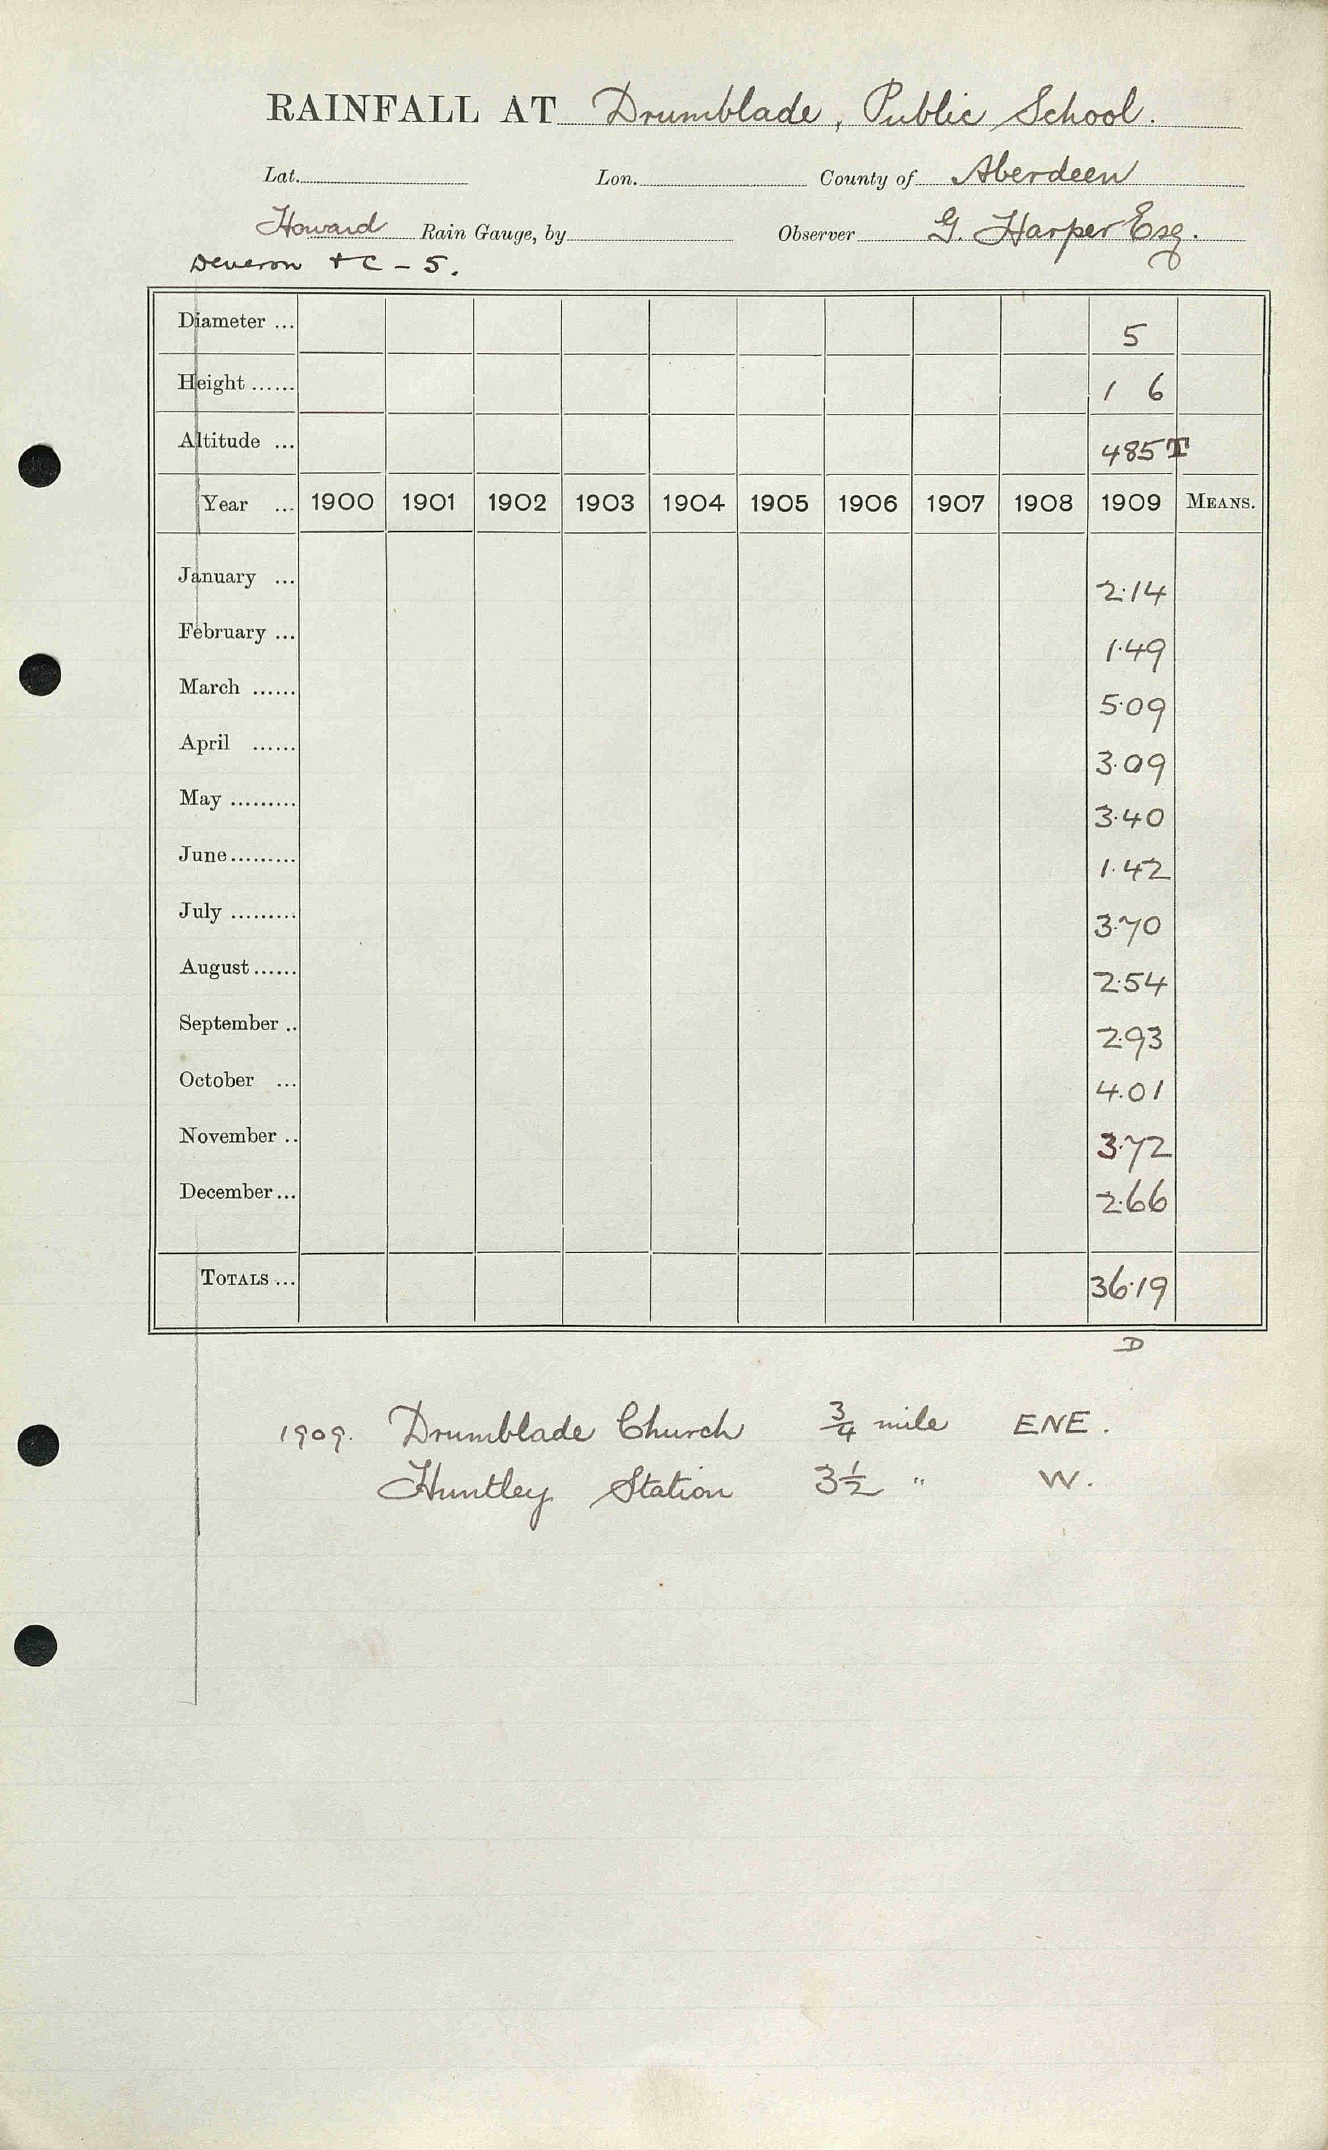 RAINFALL AT Drumblade, Public School.
Lat. Lon. County of Aberdeen
Howard Rain Gauge, by Observer G. Harper Esq.
Deveron &c - 5.
Diameter ... 5
Height ...... 1 6
Altitude ... 485 T
Year ... 1900 1901 1902 1903 1904 1905 1906 1907 1908 1909 MEANS.
January ... 2.14
February ... 1.49
March ...... 5.09
April ...... 3.09
May ......... 3.40
June ......... 1.42
July ......... 3.70
August ...... 2.54
September .. 2.93
October ... 4.01
November .. 3.72
December ... 2.66
TOTALS ... 36.19
D
1909. Drumblade Church 3/4 mile ENE.
Huntley Station 3 1/2 " W.